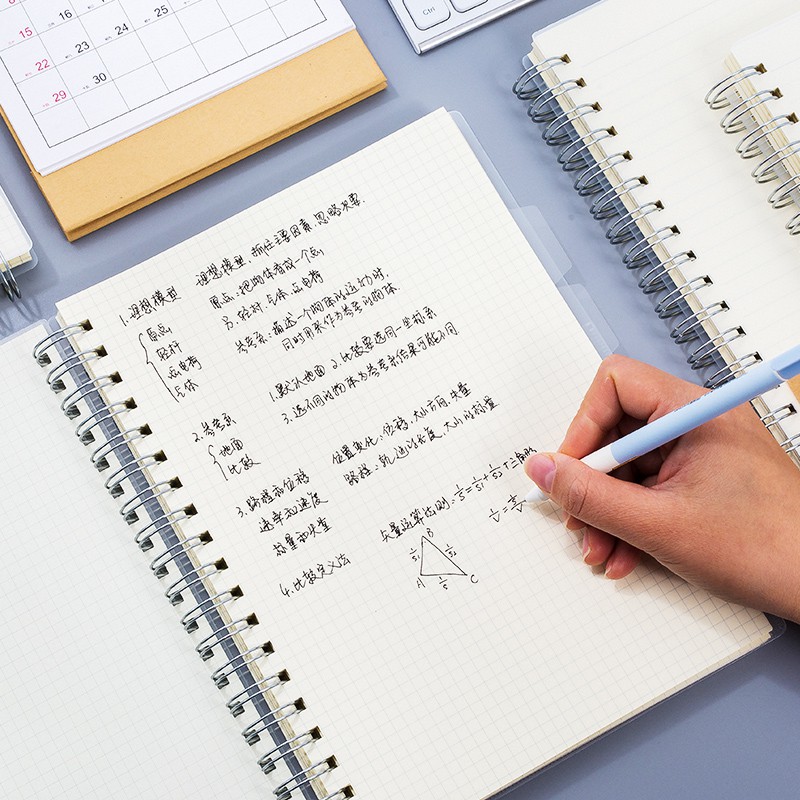 15 16
22 23 24 25
29 30
Ctrl
1.理想模型
质点
轻杆
点电荷
气体
理想模型,抓住主要因素,忽略次要.
质点:把物体看成一个点
另:轻杆,气体,点电荷
参考系:描述一个物体的运动时,
同时用来作为参考的物体.
1.默认地面 2.比较要选同一坐标系
3.选不同的物体为参考系结果可能不同
2.参考系
地面
比较
3.路程和位移
速率和速度
标量和矢量
位置变化:位移,大小方向,矢量
路程:轨迹长度,大小的标量
4.比较定义法
矢量运算法则:
B
A
C